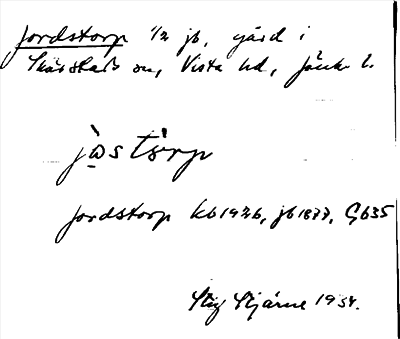 Jordstorp 1/2 jb, gård i
Skärstads sn, Vista hd, Jönk. l.
jo̱s tårp
Jordstorp kb 1926, jb 1877, Gb35
Stig Stjärne 1954.